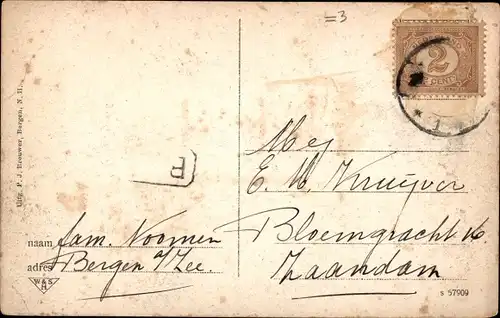 =3
NEDERLAND
2
CENT
1
Uitg. P. J. Brouwer, Bergen, N. H.
P
Mej
E. M. Kruijver
Bloemgracht 16
Zaandam
naam fam. Noomen
adres Bergen a/Zee.
W&S
N
S 57909